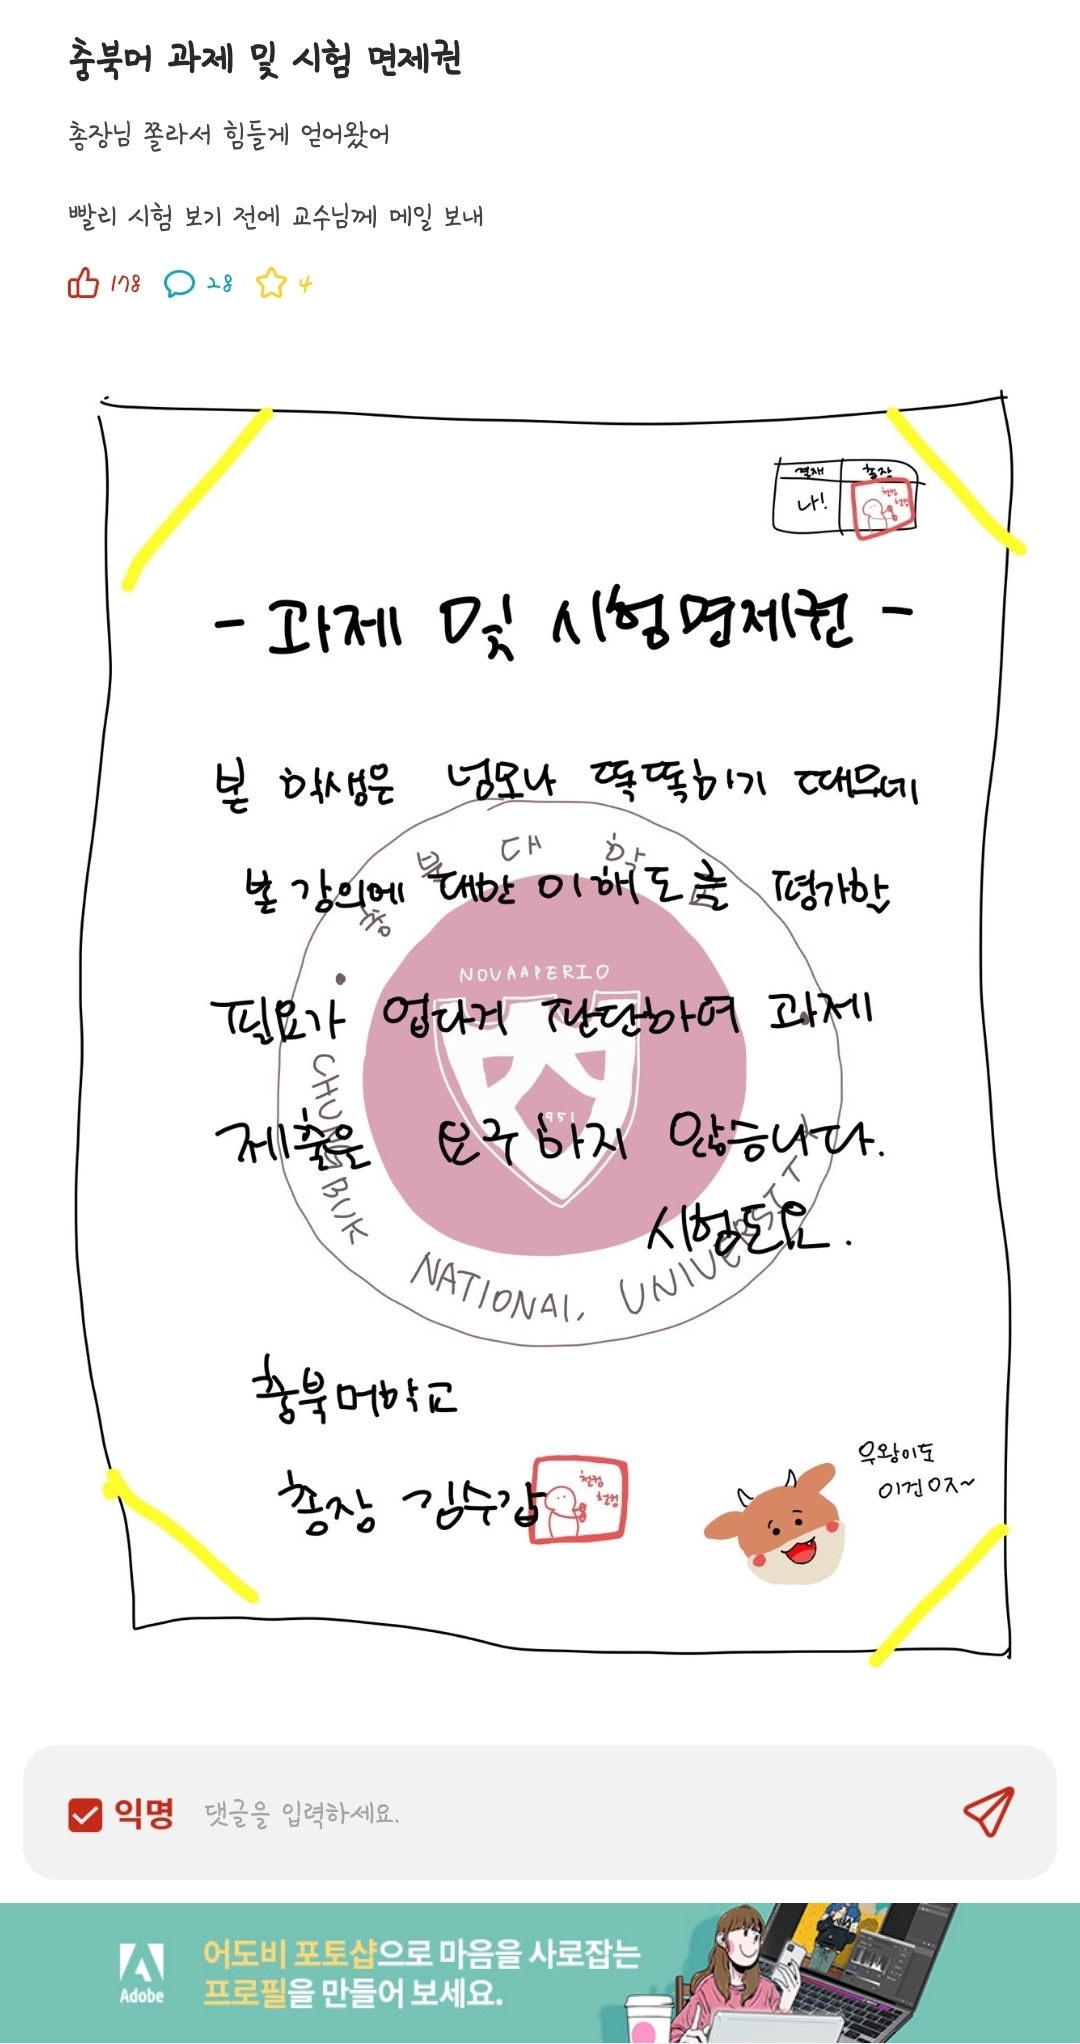 충북머 과제 및 시험 면제권
총장님 쫄라서 힘들게 얻어왔어
빨리 시험 보기 전에 교수님께 메일 보내
178 28 4
결재 총장
나! 첨컹
첨컹
- 과제 및 시험면제권 -
본 학생은 넘모나 똑똑하기 때무네
본 강의에 대한 이해도를 평가할
필요가 업다게 판단하여 과제
제출을 요구하지 않습니다.
시험도요.
충북대학교
NOVAAPERIO
1951
CHUNGBUK NATIONAL UNIVERSITY
충북머학교
총장 김수갑
우왕이도
이건 인정~
익명 댓글을 입력하세요.
Adobe
어도비 포토샵으로 마음을 사로잡는
프로필을 만들어 보세요.